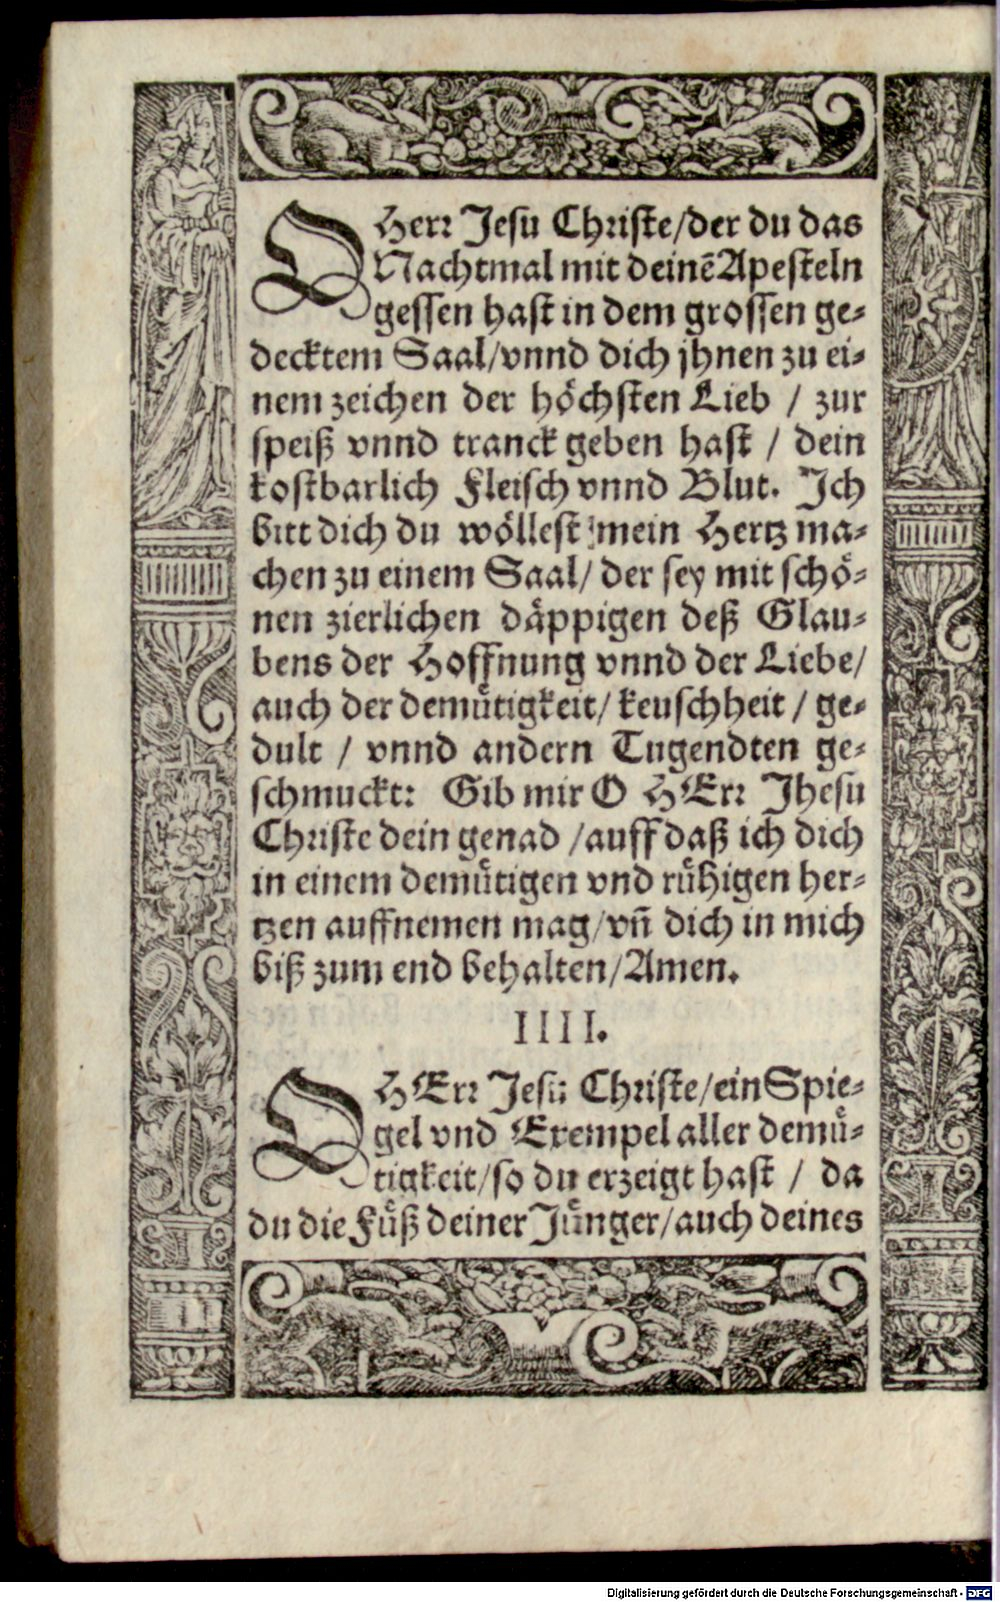 O Herr Jesu Christe/der du das
Nachtmal mit deinē Apesteln
gessen hast in dem grossen ge-
decktem Saal/vnnd dich jhnen zu ei-
nem zeichen der höchsten Lieb / zur
speiß vnnd tranck geben hast / dein
kostbarlich Fleisch vnnd Blut. Ich
bitt dich du wöllest mein Hertz ma-
chen zu einem Saal/ der sey mit schö-
nen zierlichen däppigen deß Glau-
bens der Hoffnung vnnd der Liebe/
auch der demuͤtigkeit/ keuschheit / ge-
dult / vnnd andern Tugendten ge-
schmuckt: Gib mir O HErr Jhesu
Christe dein genad /auff daß ich dich
in einem demuͤtigen vnd ruͤhigen her-
tzen auffnemen mag/vñ dich in mich
biß zum end behalten/Amen.
IIII.
O HErr Jesu Christe/ein Spie-
gel vnd Exempel aller demuͤ-
tigkeit/so du erzeigt hast / da
du die Fuͤß deiner Juͤnger/auch deines
Digitalisierung gefördert durch die Deutsche Forschungsgemeinschaft - DFG